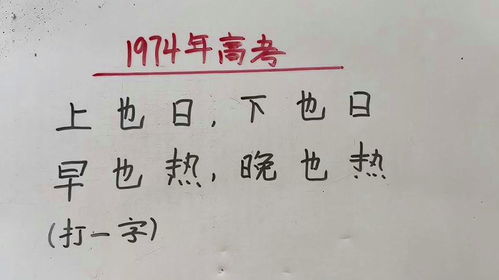 1974年高考
上也日,下也日
早也热,晚也热
(打一字)